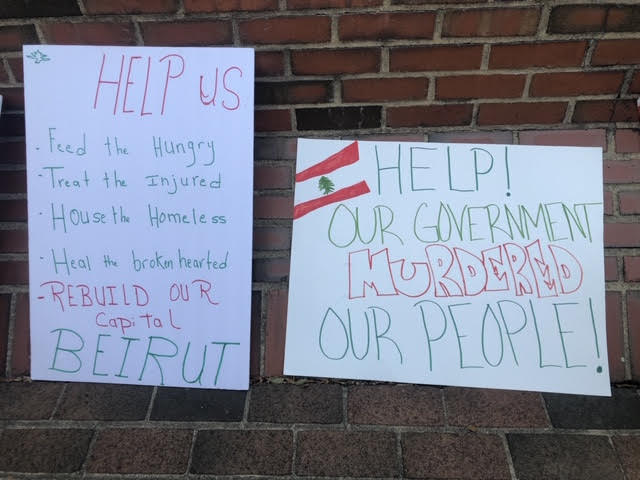 HELP US
- Feed the Hungry
- Treat the Injured
- House the Homeless
- Heal the broken hearted
- REBUILD OUR
Capital
BEIRUT
HELP!
OUR GOVERNMENT
MURDERED
OUR PEOPLE!